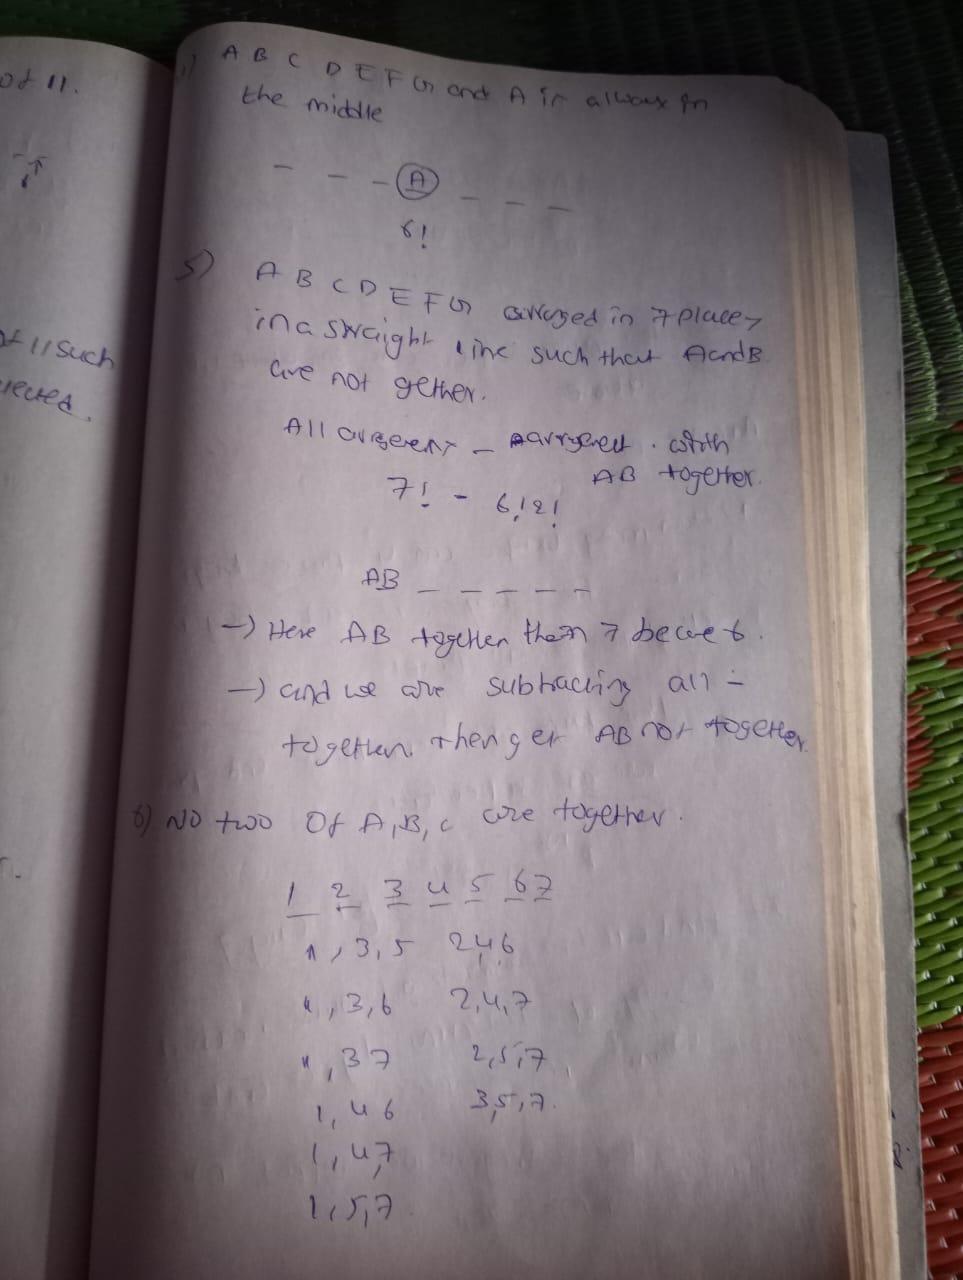 of 11.
of 11 such
A B C D E F G and A is always in
the middle
_ _ _ A _ _ _
6!
5) A B C D E F G arranged in 7 places
in a straight line such that A and B
are not gether.
All - with
AB together.
7! - 6!2!
AB _ _ _ _ _
-> Here AB together then 7 6.
-> and we are subtracting all -
together. then get AB not together.
6) No two of A, B, C are together.
1 2 3 4 5 6 7
1, 3, 5 2,4,6
1, 3, 6 2, 4, 7
1, 3 7 2, 5, 7
1, 4 6 3, 5, 7.
1, 4, 7
1, 5, 7